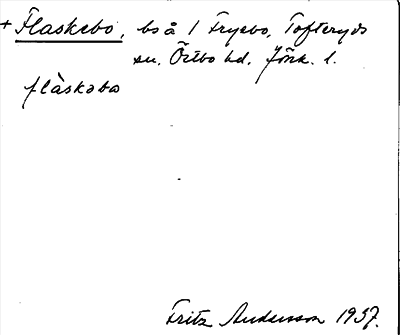 + Flaskebo, bs å 1 Fryebo, Tofteryds
sn. Östbo hd. Jönk. l.
flàskəbo
Fritz Andersson 1937.